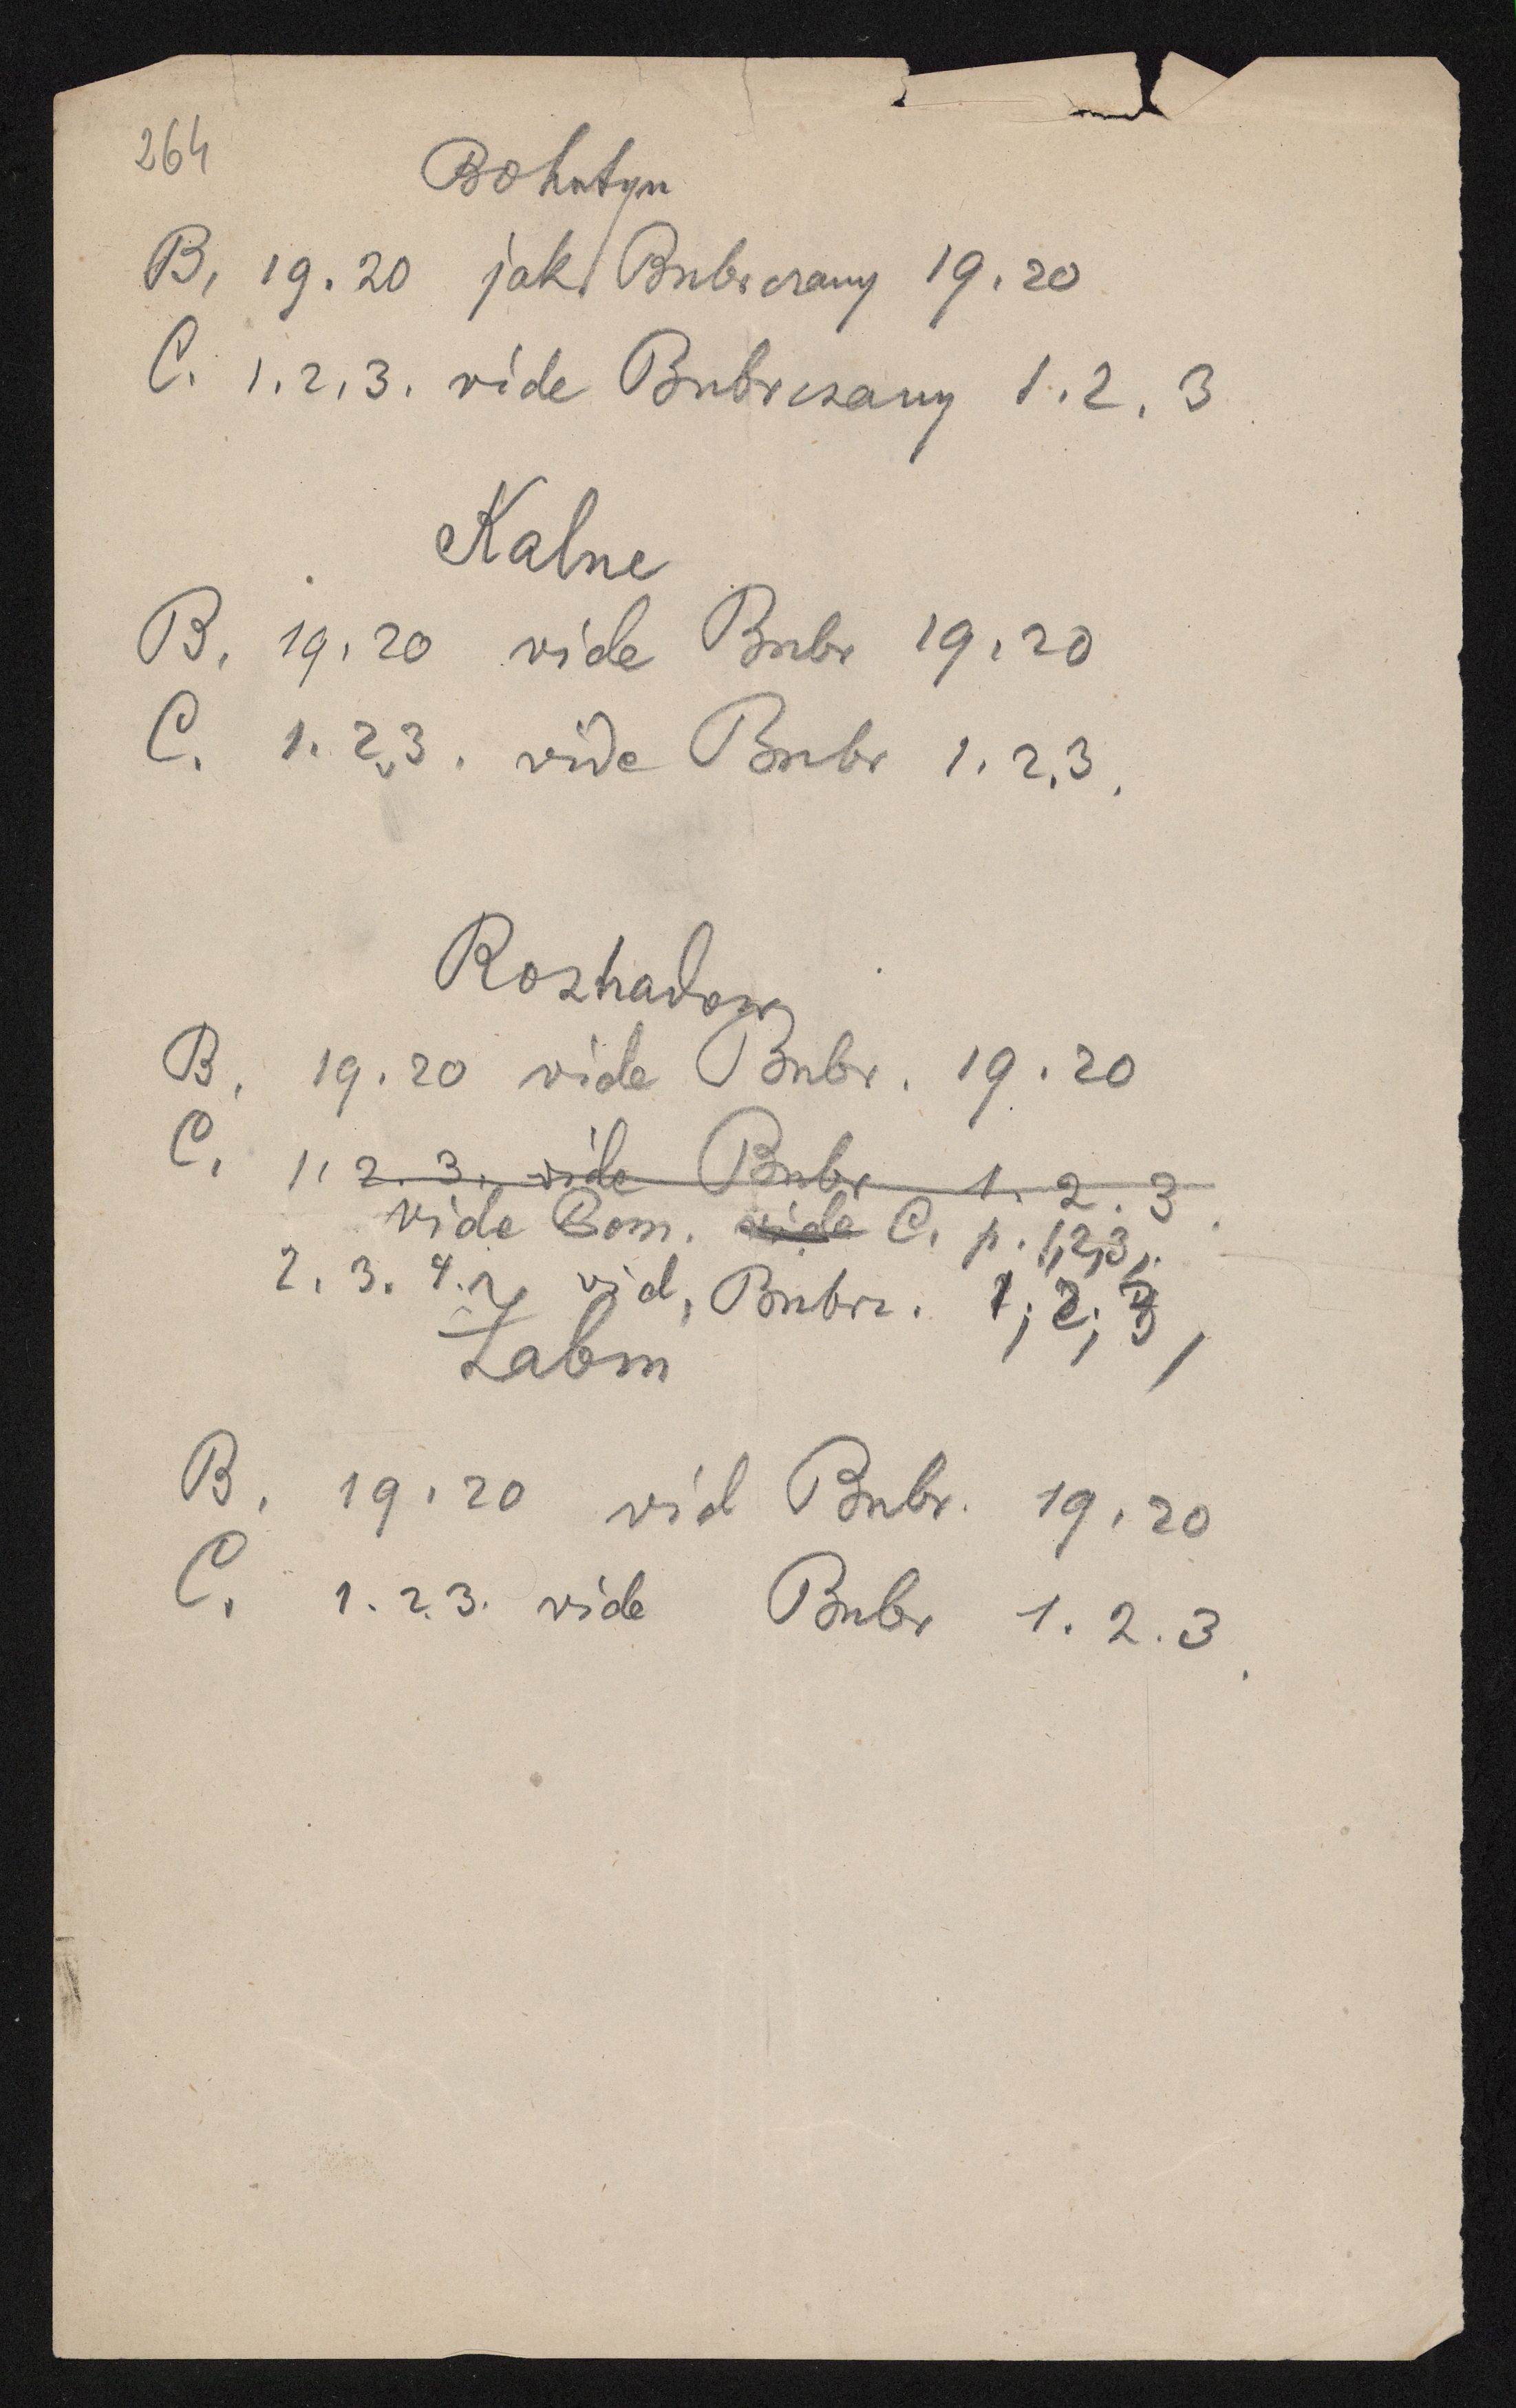 264
Bohutyn
B, 19. 20 jak Bubrczany 19. 20
C. 1. 2, 3. vide Bubrczany 1. 2, 3
Kalne
B. 19. 20 vide Bubr 19. 20
C. 1. 2, 3. vide Bubr 1. 2, 3.
Rozhadow
B. 19. 20 vide Bubr. 19. 20
C. 1. 2. 3. vide Bubr 1. 2. 3.
vide Bom. vide C. p. 1, 2, 3,
2. 3. 4. vid, Bubrz. 1; 2; 3,
Żabin
B. 19. 20 vid Bubr. 19. 20
C. 1. 2. 3. vide Bubr 1. 2. 3.